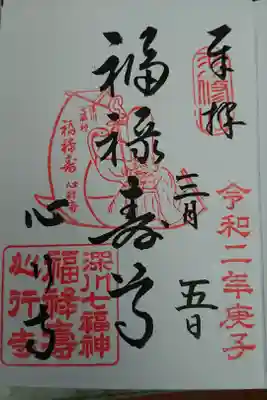 奉拝
令和二年庚子
三月五日
福禄寿尊
心行寺
福禄寿
心行寺
深川七福神
福禄壽
心行寺